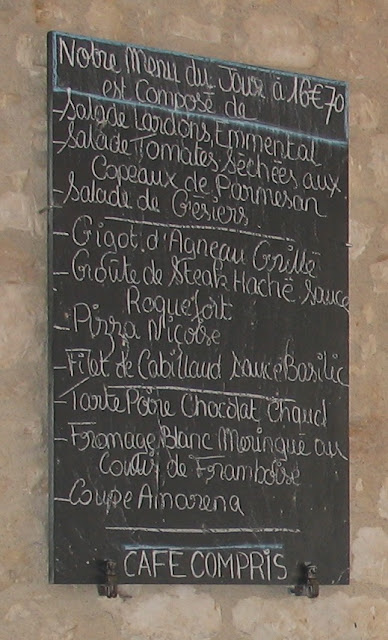 Notre Menu du Jour à 16€70
est Composé de
- Salade Lardons, Emmental
- Salade Tomates Séchées aux
Copeaux de Parmesan
- Salade de Gésiers
- Gigot d'Agneau Grillé
- Croûte de Steak Haché Sauce
Roquefort
- Pizza Niçoise
- Filet de Cabillaud Sauce Basilic
- Tarte Poire Chocolat Chaud
- Fromage Blanc Meringué au
Coulis de Framboise
- Coupe Amarena
CAFE COMPRIS